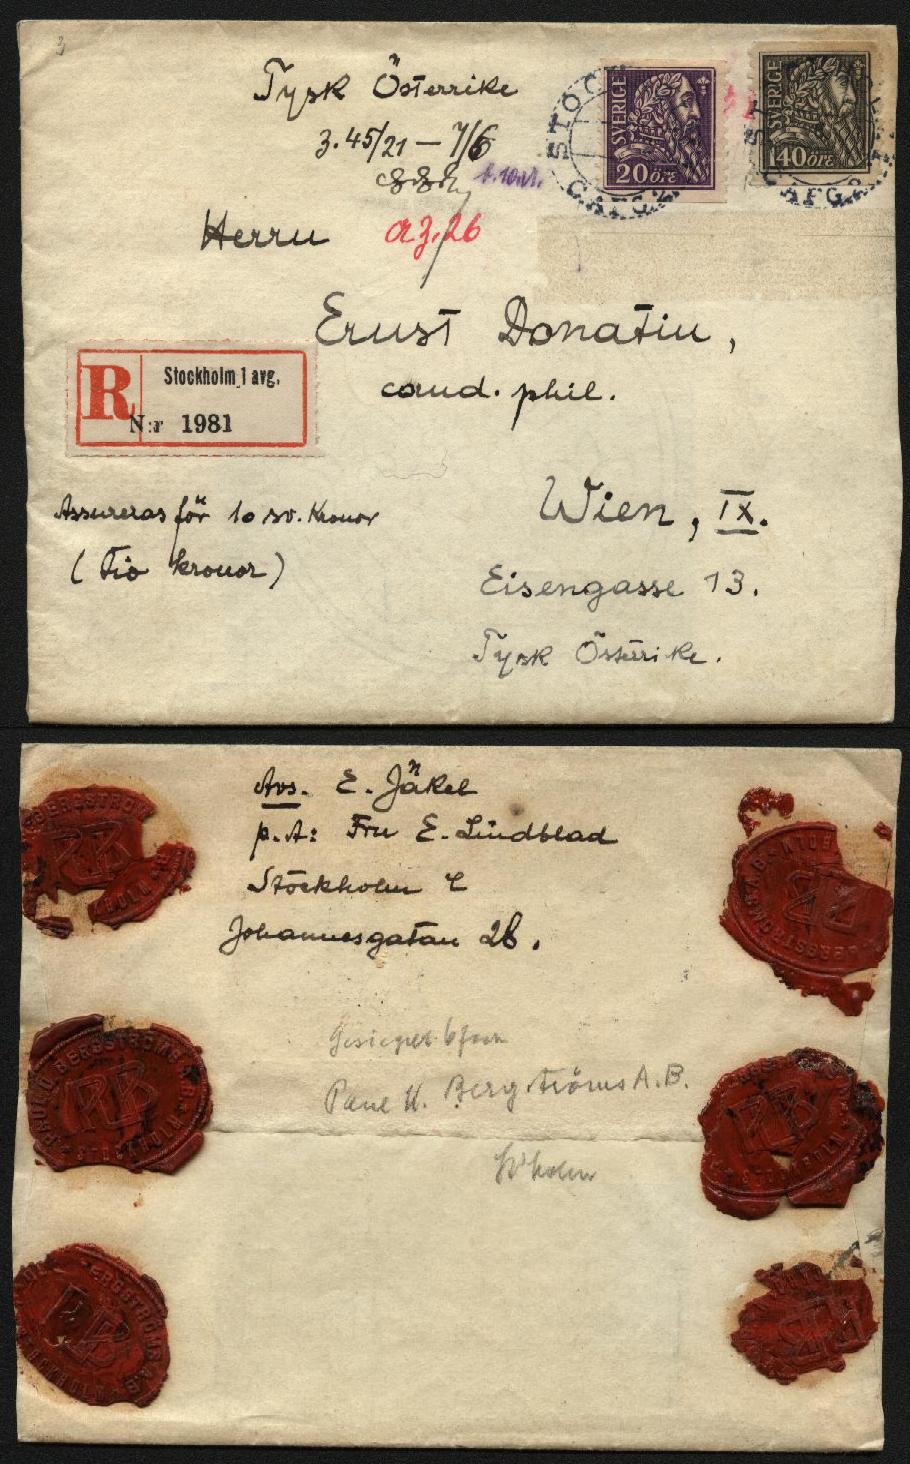 Tysk Österrike
3.45/21 — 7/6
a.z. 26
SVERIGE
20 öre
SVERIGE
140 öre
STOCK
C.AFG.
C.AFG.
Herrn
Ernst Donatin,
cand. phil.
R
Stockholm 1 avg.
N:r 1981
Assureras för 10 sv. Kronor
(Tio kronor)
Wien, IX.
Eisengasse 13.
Tysk Österrike.
Avs. E. Jäkel
p. A: Fru E. Lindblad
Stockholm C
Johannesgatan 26.
Bergströms A.B.
Stholm
BERGSTRÖMS
PAUL U. BERGSTRÖMS A.B.
STOCKHOLM